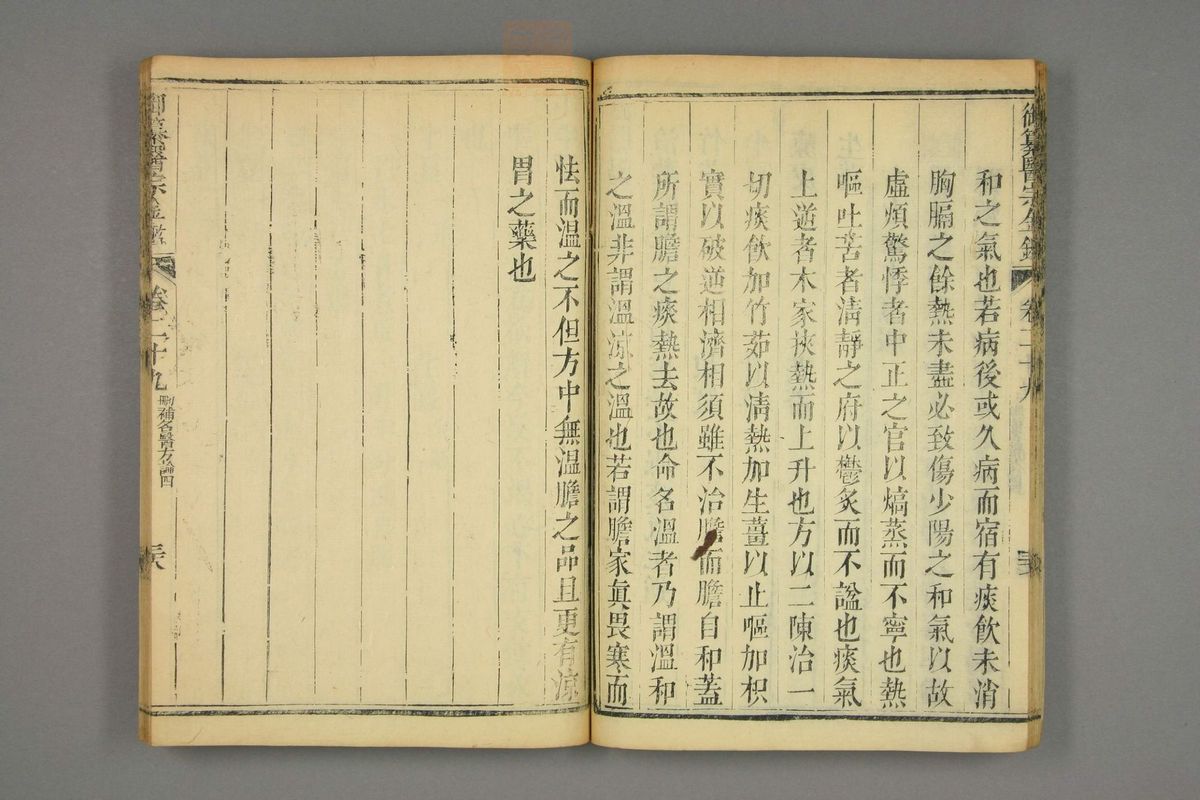 御纂醫宗金鑑 卷二十九
和之氣也若病後或久病而宿有痰飲未消
胸膈之餘熱未盡必致傷少陽之和氣以故
虛煩驚悸者中正之官以熇蒸而不寧也熱
嘔吐苦者清靜之府以鬱炙而不謐也痰氣
上逆者木家挾熱而上升也方以二陳治一
切痰飲加竹茹以清熱加生薑以止嘔加枳
實以破逆相濟相須雖不治膽而膽自和蓋
所謂膽之痰熱去故也命名溫者乃謂溫和
之溫非謂溫涼之溫也若謂膽家真畏寒而
怯而溫之不但方中無溫膽之品且更有涼
胃之藥也
御纂醫宗金鑑 卷二十九 刪補名醫方論四 三六